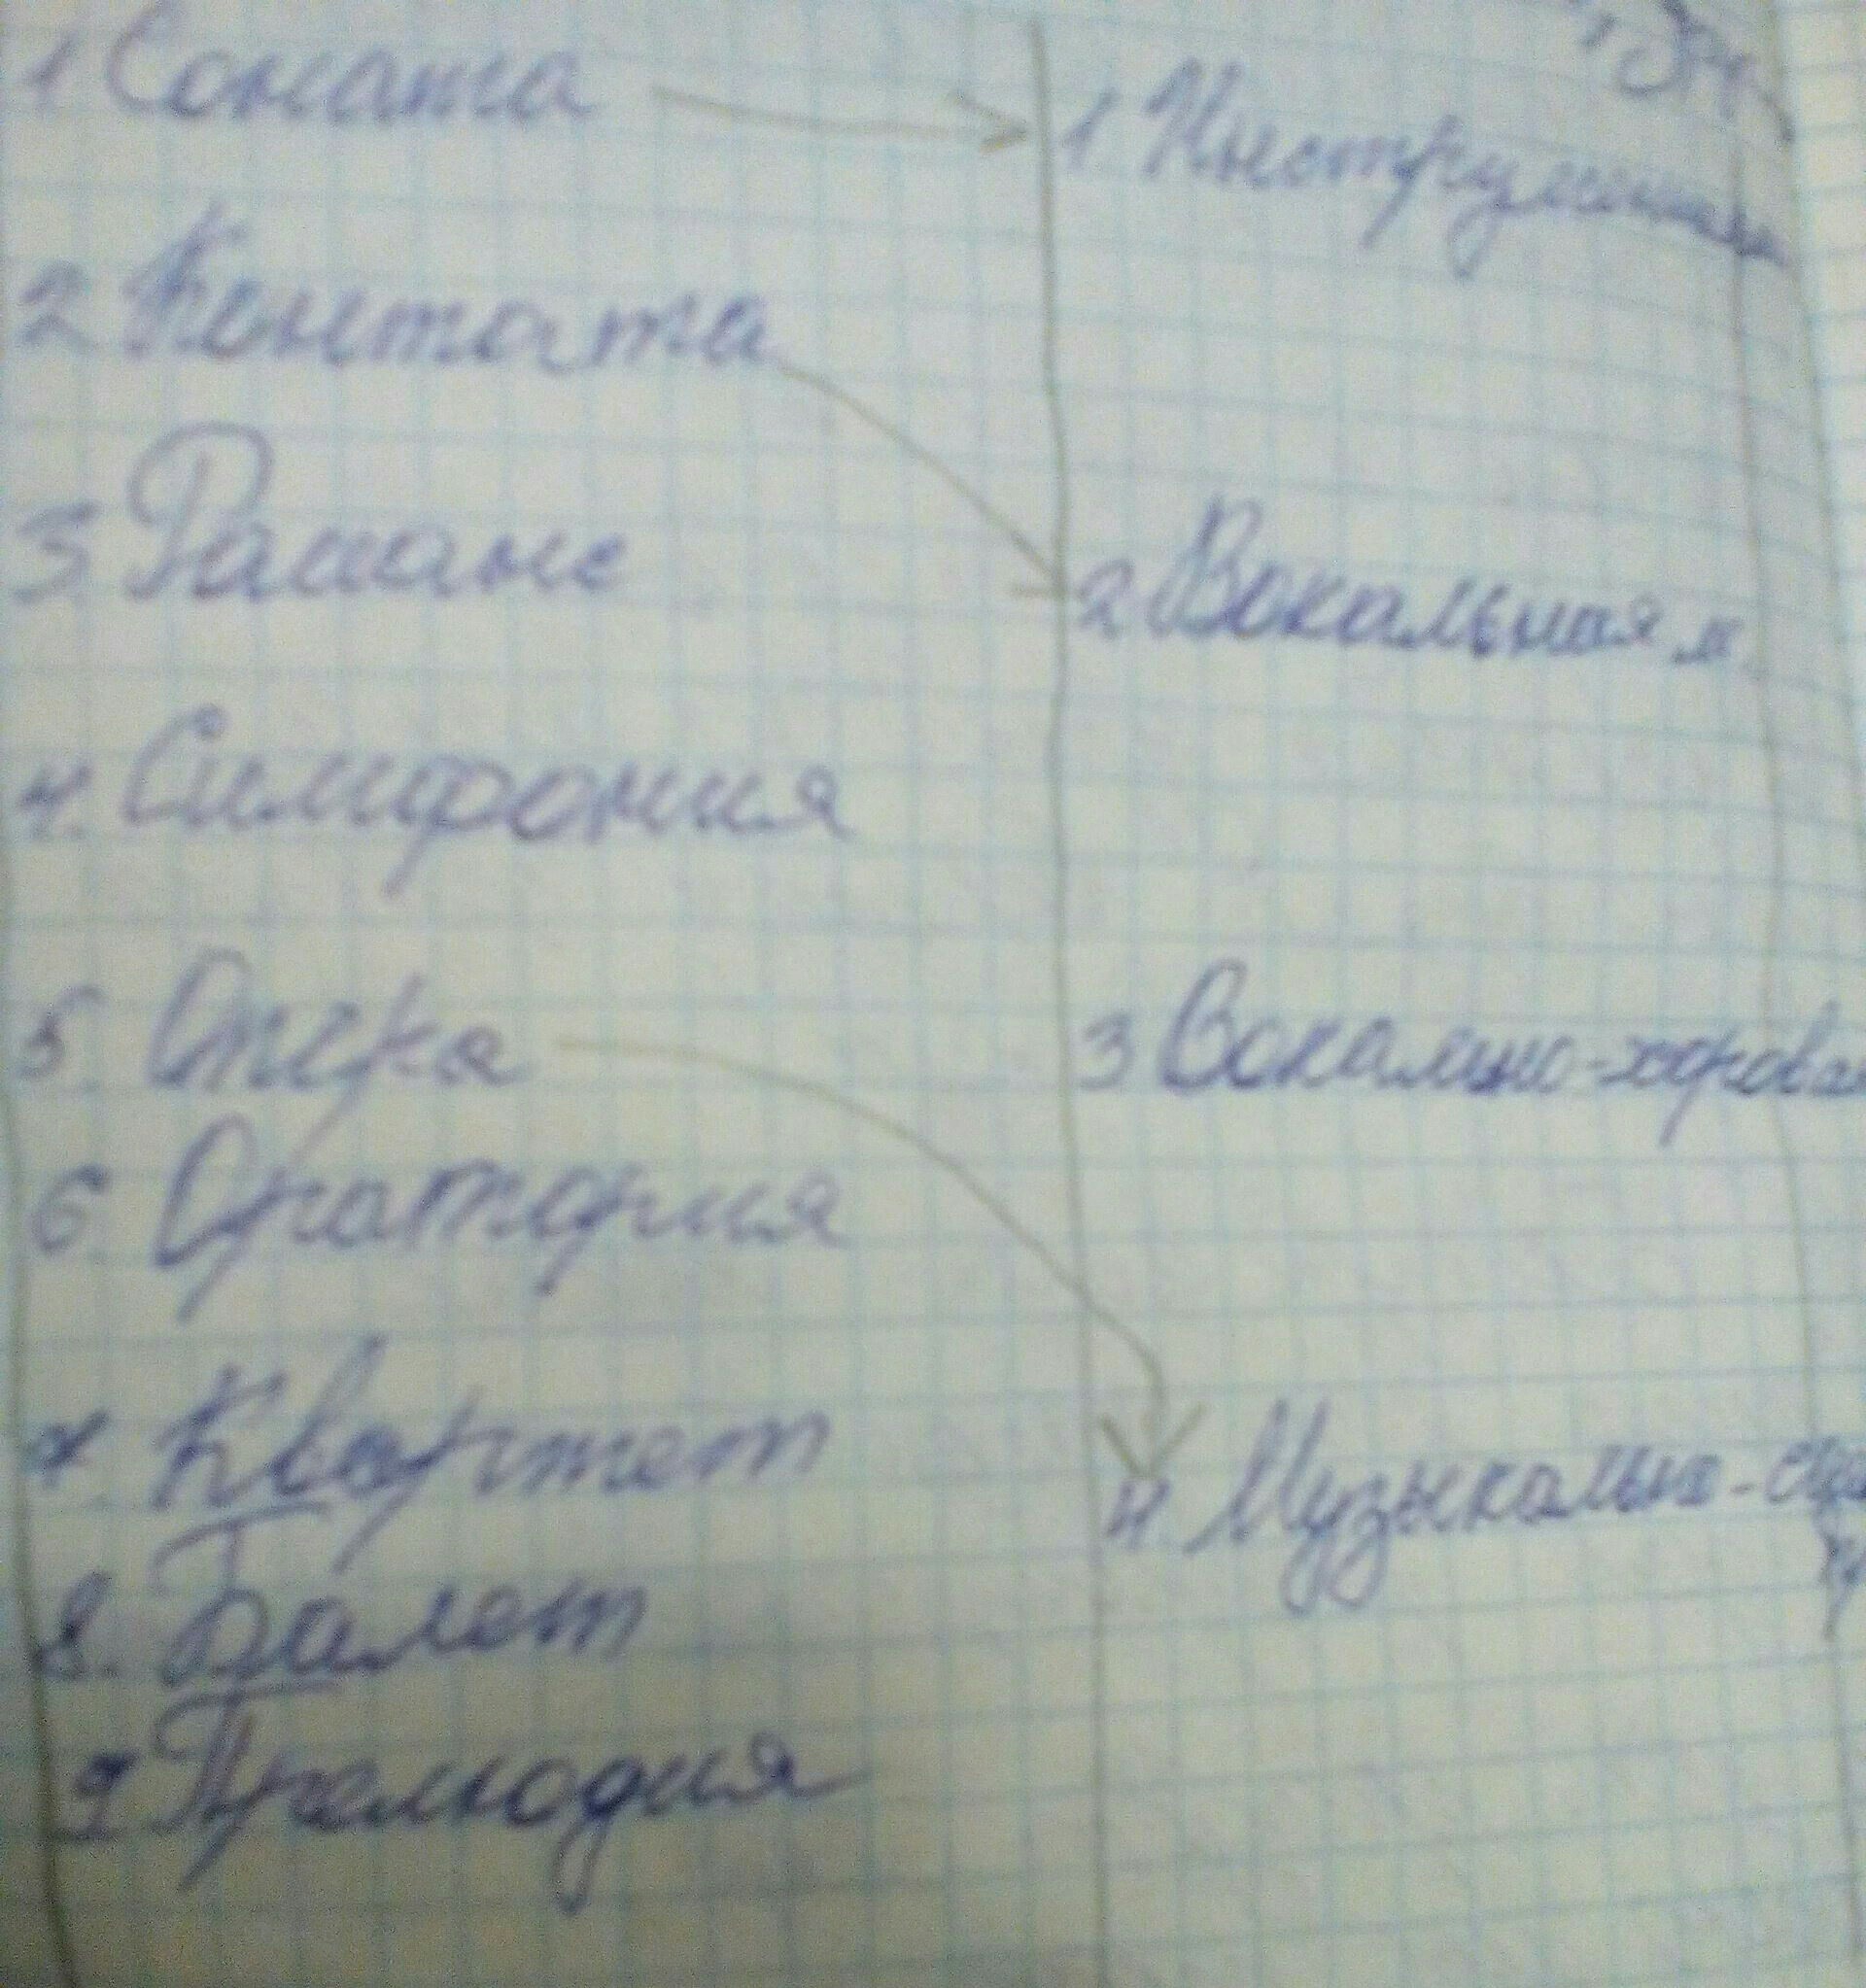 1 Соната
2 Кантата
3. Романс
4. Симфония
5 Опера
6 Оратория
7 Квартет
8. Балет
9 Прелюдия
1. Инструментал
2 Вокальная м.
3 Вокально-хоровая
4. Музыкально-сце